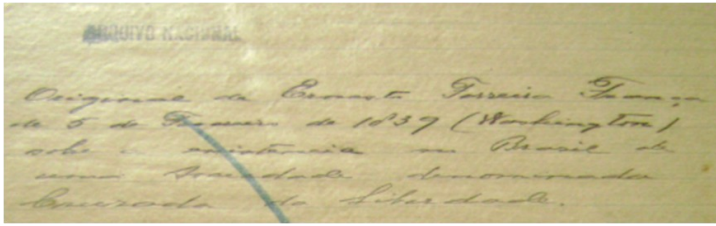 ARQUIVO NACIONAL
Original de Ernesto Ferreira França
de 5 de Fevereiro de 1839 (Washington)
sobre a existencia no Brasil de
uma sociedade denominada
Cruzada da Liberdade.